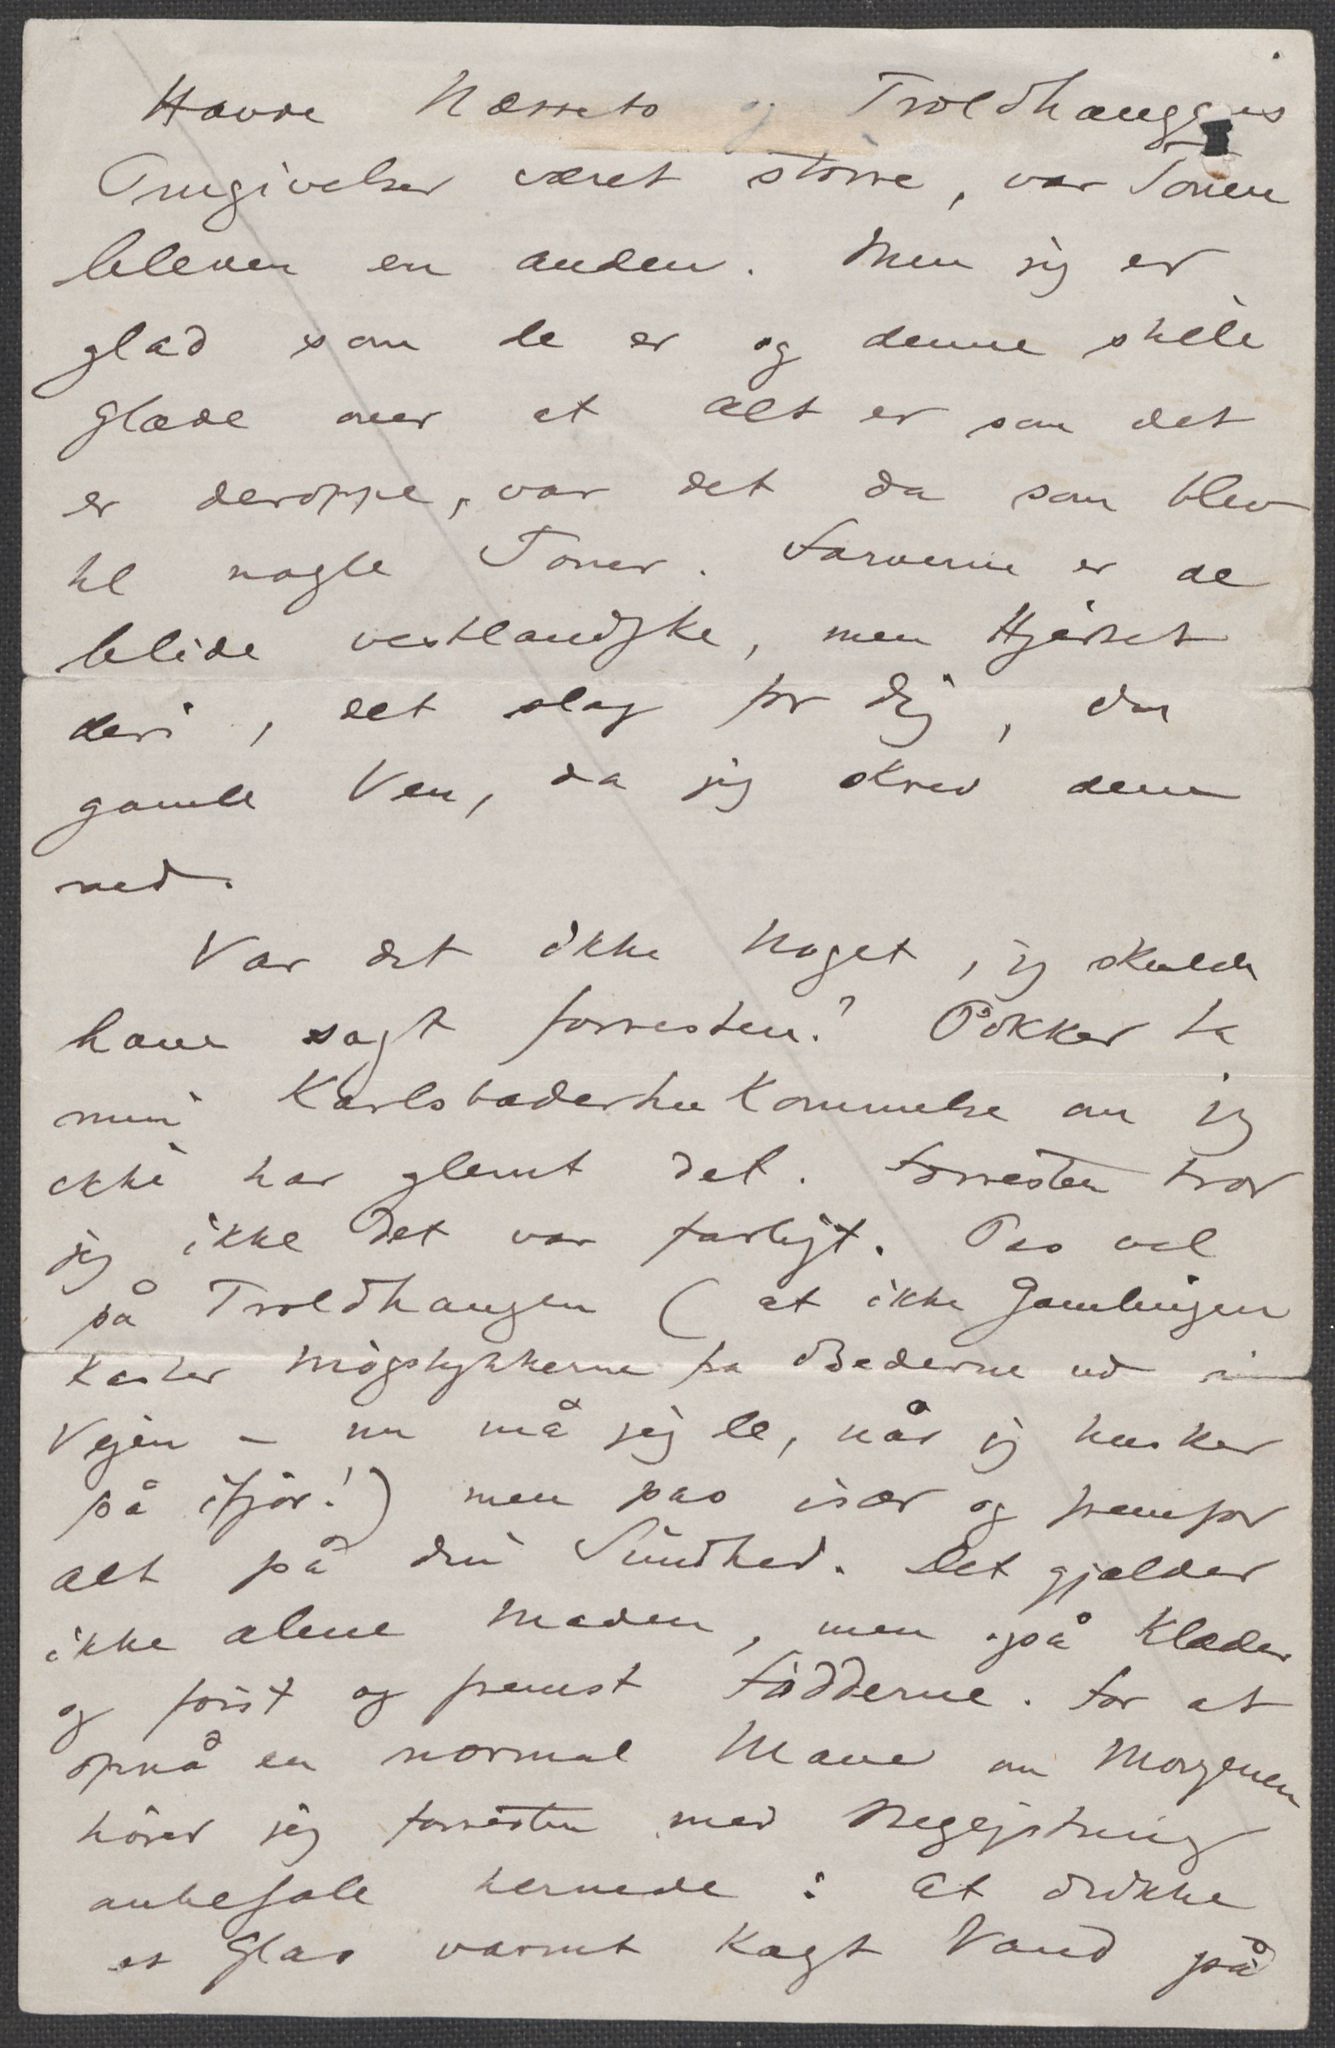 Havde Næssets og Troldhaugens
Omgivelser været större, var Tonen
bleven en anden. Men jeg er
glad som de er og denne stille
Glæde over at alt er som det
er deroppe, var det da som blev
til nogle Toner. Farverne er de
blide vestlandske, men Hjertet
deri, det slog for dig, du
gamle Ven, da jeg skrev dem
ned.
Var det ikke noget, jeg skulde
have sagt forresten? Pokker ta
min Karlsbaderhukommelse om jeg
ikke har glemt det. Forresten tror
jeg ikke det var farligt. Pas vel
på Troldhaugen (at ikke Gamlingen
kaster Mögstykkerne fra Bederne ud i
Vejen – nu må jeg le, når jeg husker
på ifjör!) men pas især og fremfor
alt på din Sundhed. Det gjælder
ikke alene Maden, men på Klæder
og först og fremst Födderne. For at
opnå en normal Mave om Morgenen
hörer jeg forresten med Begejstring
anbefale hernede: at drikke
et Glas varmt kogt Vand på